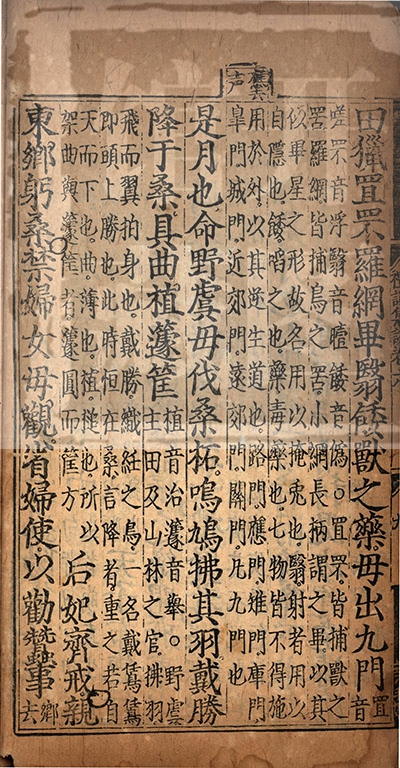 田獵罝罘羅網畢翳餧獸之藥毋出九門罝音
嗟罘音浮翳音曀餧音偽○罝罘皆捕獸之
罟羅網皆捕鳥之罟小網長柄謂之畢以其
似畢星之形故名用以掩兔也翳射者用以
自隱也餧啗之也藥毒藥也七物皆不得施
用於外以其逆生道也路門應門雉門庫門
皐門城門近郊門遠郊門關門凢九門也
是月也命野虞毋伐桑柘鳴鳩拂其羽戴勝
降于桑具曲植籧筐
植音治籧音舉○野虞
主田及山林之官拂羽
飛而翼拍身也戴勝織紝之鳥一名戴鵀鵀
即頭上勝也此時恒在桑言降者重之若自
天而下也曲薄也植槌也所以
架曲與籧筐者籧圓而筐方
后妃齊戒親
東鄉躬桑禁婦女毋觀省婦使以勸蠶事
鄉去